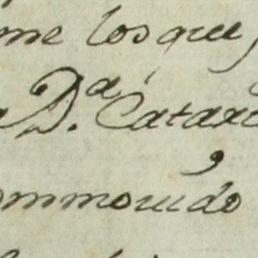 me los que
D.ª Catar
ommovido